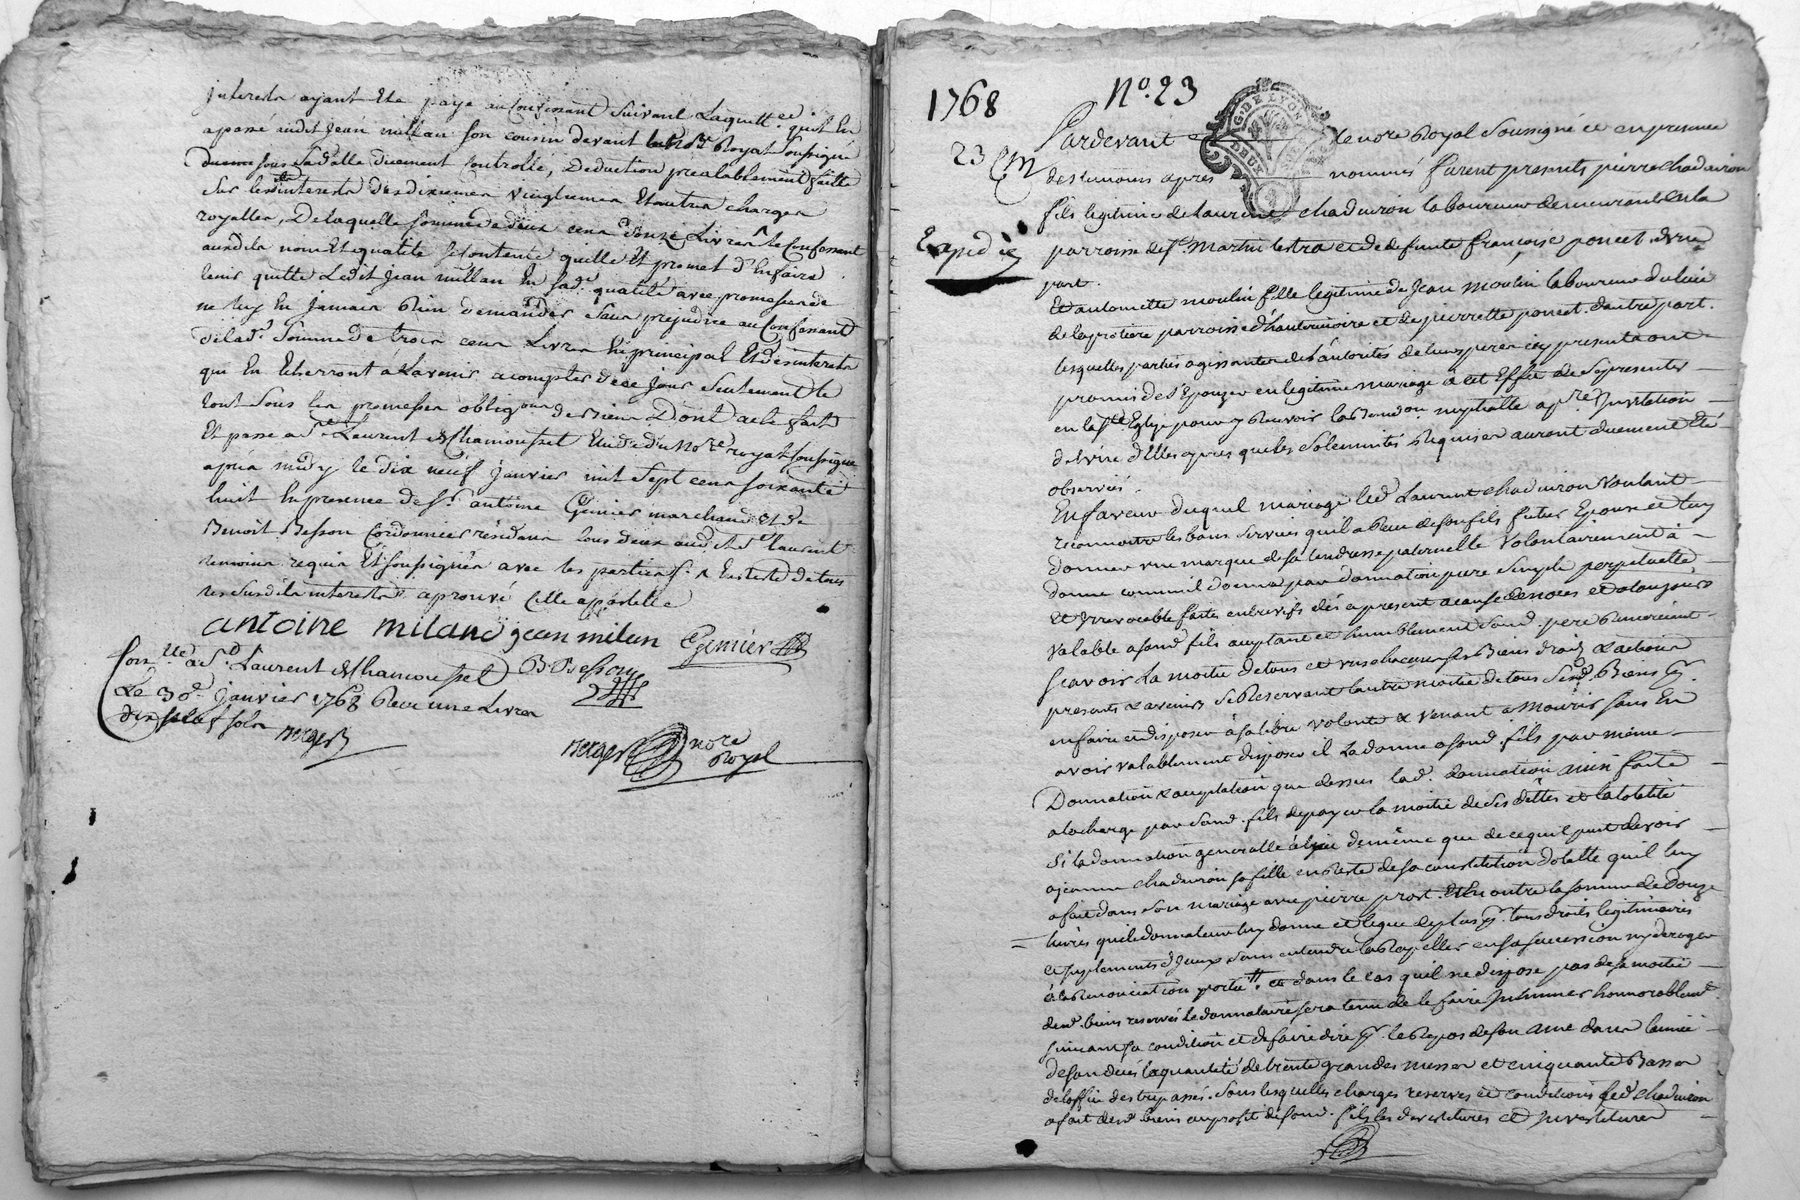 interests ayant Eté payé au Confessant Suivant Laquitt.ce quil En
a passé audit Jean millan son cousin devant le No.re Royal soussigné
sous Sa datte duement Controllé, Deduction prealablement faitte
Sur lesd. interests des dixiemes vingtiemes Et autres charges
royalles, De laquelle somme de deux cens douze Livres le Confessant
ausdits nom Et qualité Se Contente quitte Et promet d'En faire
tenir quitte Ledit Jean millan En sad. qualité avec promesse de
ne luy En Jamais Rien demander Sans prejudice au Confessant
de lad. Somme de trois cens Livres En principal Et des interests
qui En Echerront à L'avenir a compter de ce jour Seulement le
tout Sous les promesses obligaon de biens Dont acte fait
Et passé a St. Laurent de Chamousset Etude du No.re royal soussigné
après midy le dix neuf janvier mil Sept cens soixante
huit En presence de Sr. antoine Genier marchand Et de
Benoit Besson Cordonnier résidans tous deux aud. St. Laurent
temoins requis Et soussignés avec les parties
les susdits interests aprouvé cette apostille
antoine milan jean milan Genier
Con.llé a St. Laurent de Chamousset B. Besson
Le 30e. janvier 1768 Reçu une Livre
dix sols
Berger
Berger no.re Royal
1768 No. 23
G. DE LYON
DEUX
23
Expedié
Pardevant le no.re Royal Soussigné et en presence
des temoins après nommés furent presents pierre chaduiron
fils legitime de Laurent chaduiron laboureur demeurant en la
parroisse de St. Martin lestra et de defunte françoise poncet d'une
part.
Et antoinette moulin fille legitime de Jean moulin laboureur du lieu
de la parroisse d'hauterivoire et de pierrette poncet d'autre part.
lesquelles parties agissantes de l'autorité de leurs peres icy presents ont
promis de S'Epouzer en legitime mariage a cet Effet de Se presenter
en la Ste. Eglise pour y Recevoir la Benedon nuptialle a p.re Invitation
de l'une d'elles apres que les Solemnités Requises auront duement Eté
observés.
En faveur duquel mariage led. Laurent chaduiron voulant
reconnoitre les bons Services qu'il a Reçu de son fils futur Epoux et luy
donner une marque de sa tendresse paternelle volontairement a
donné comme il donne par donnation pure Simple perpetuelle
et irrevocable faite entre vifs dès a present a cause de noces et a toujours
valable a sond. fils acceptant et humblement sond. pere Remerciant
Scavoir la moitié de tous et uns chacuns ses Biens droits & actions
presents & avenir Se Reservant l'autre moitié de tous Sesd. Biens pr.
en faire et disposer à sa libre volonté & venant a Mourir sans En
avoir valablement disposer il la donne a sond. fils par même
Donnation & acceptation que dessus lad. donnation ainsi faite
a la charge par sond. fils de payer la moitié de ses dettes et la totalité
Si la donnation generalle a lieu de même que de ce qu'il peut devoir
a jeanne chaduiron sa fille en Reste de sa constitution dotalle qu'il luy
a fait dans son mariage avec pierre prost. Et En outre la somme de Douze
livres que le donnateur luy donne et legue de plus pr. tous droits legitimaires
et suplements d'iceux sans entendre la Rapeller en sa succession ny deroger
à la Renonciation portée. et dans le cas qu'il ne dispose pas de sa moitié
desd. biens reservés le donnataire sera tenu de le faire Inhumer honnorablem.t
suivant sa condition et de faire dire pr. le Repos de son ame dans l'année
de son decés la quantité de trente grandes messes et cinquante Basses
de l'office des trepassés. Sous lesquelles charges reserves et conditions led. chaduiron
a fait desd. biens au profit de sond. fils les devetitures et investitures